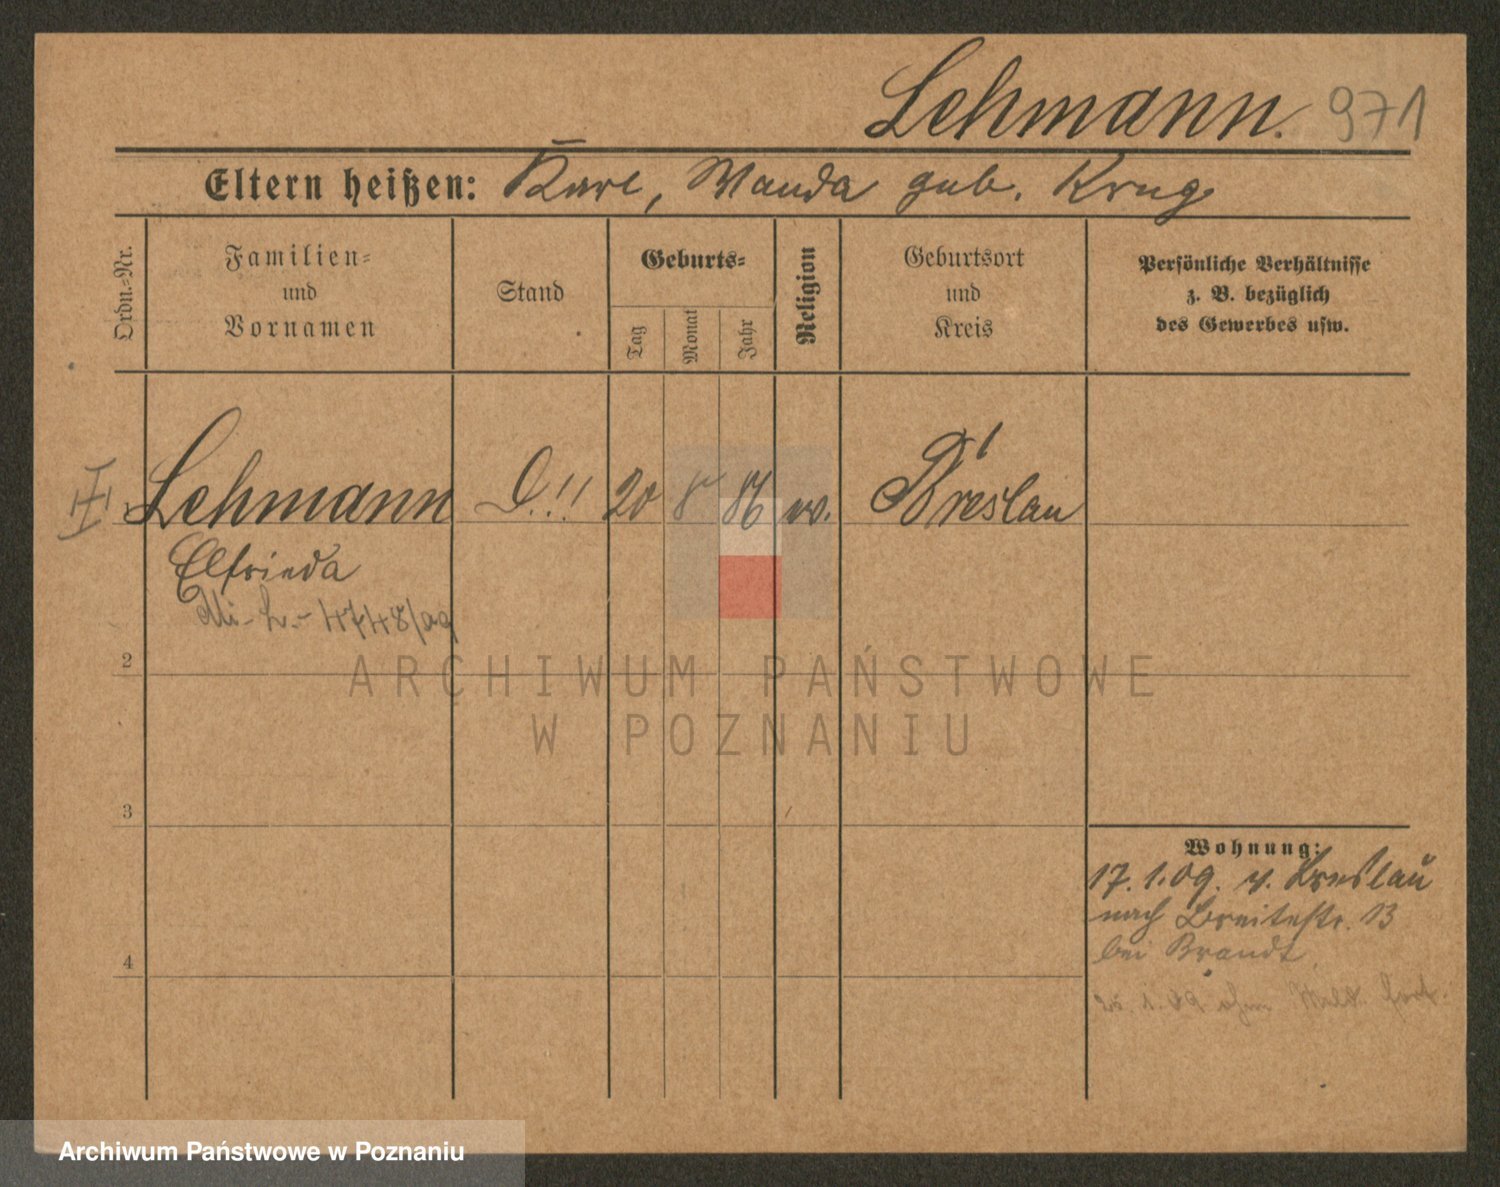 Lehmann. 971
Eltern heißen: Karl, Wanda geb. Krug
Ordn.-Nr.
Familien-
und
Vornamen
Stand
Geburts-
Tag
Monat
Jahr
Religion
Geburtsort
und
Kreis
Persönliche Verhältnisse
z. B. bezüglich
des Gewerbes usw.
Lehmann 20 8 86 Breslau
Elfrieda
4748/09
2
ARCHIWUM PAŃSTWOWE
W POZNANIU
3
Wohnung:
17. 1. 09. v. Breslau
nach Breitestr. 13
bei Brandt
4
1. 09 ohne Meld. fort.
Archiwum Państwowe w Poznaniu